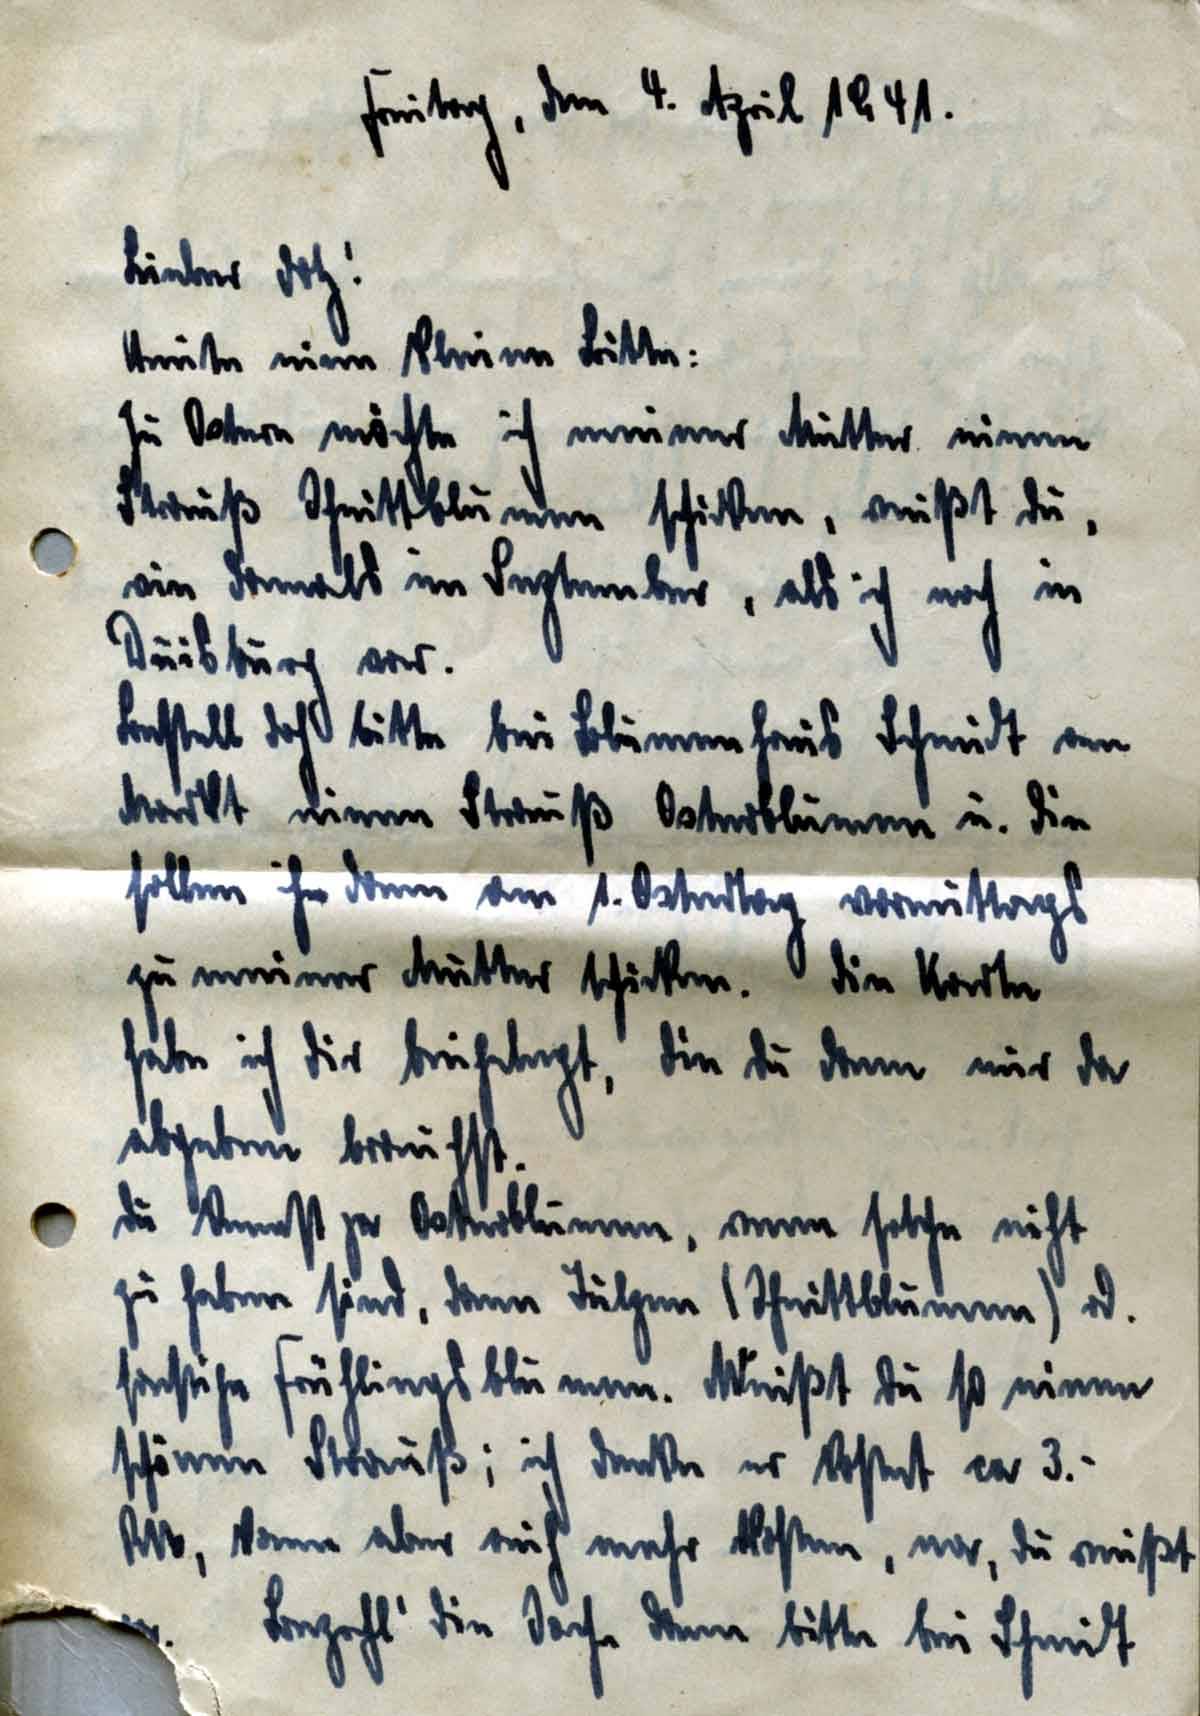 Freitag, den 4. April 1941.
Lieber Dotz!
Heute eine kleine Bitte:
Zu Ostern möchte ich meiner Mutter einen
Strauß Schnittblumen schicken, weißt du,
wie damals im September, als ich noch in
Duisburg war.
Bestell doch bitte bei Blumenhaus Schmidt am
Markt einen Strauß Osterblumen u. die
sollen ihn dann am 1. Ostertag vormittags
zu meiner Mutter schicken. Die Karte
habe ich dir beigelegt, die du dann nur da
abgeben brauchst.
Du kennst ja Osterblumen, wenn solche nicht
zu haben sind, dann Tulpen (Schnittblumen) od.
sonstige Frühlingsblumen. Weißt du so einen
schönen Strauß; ich denke er kostet ca 3.-
RM, kann aber auch mehr kosten, na, du weißt
ja. Bezahl' die Sache dann bitte bei Schmidt